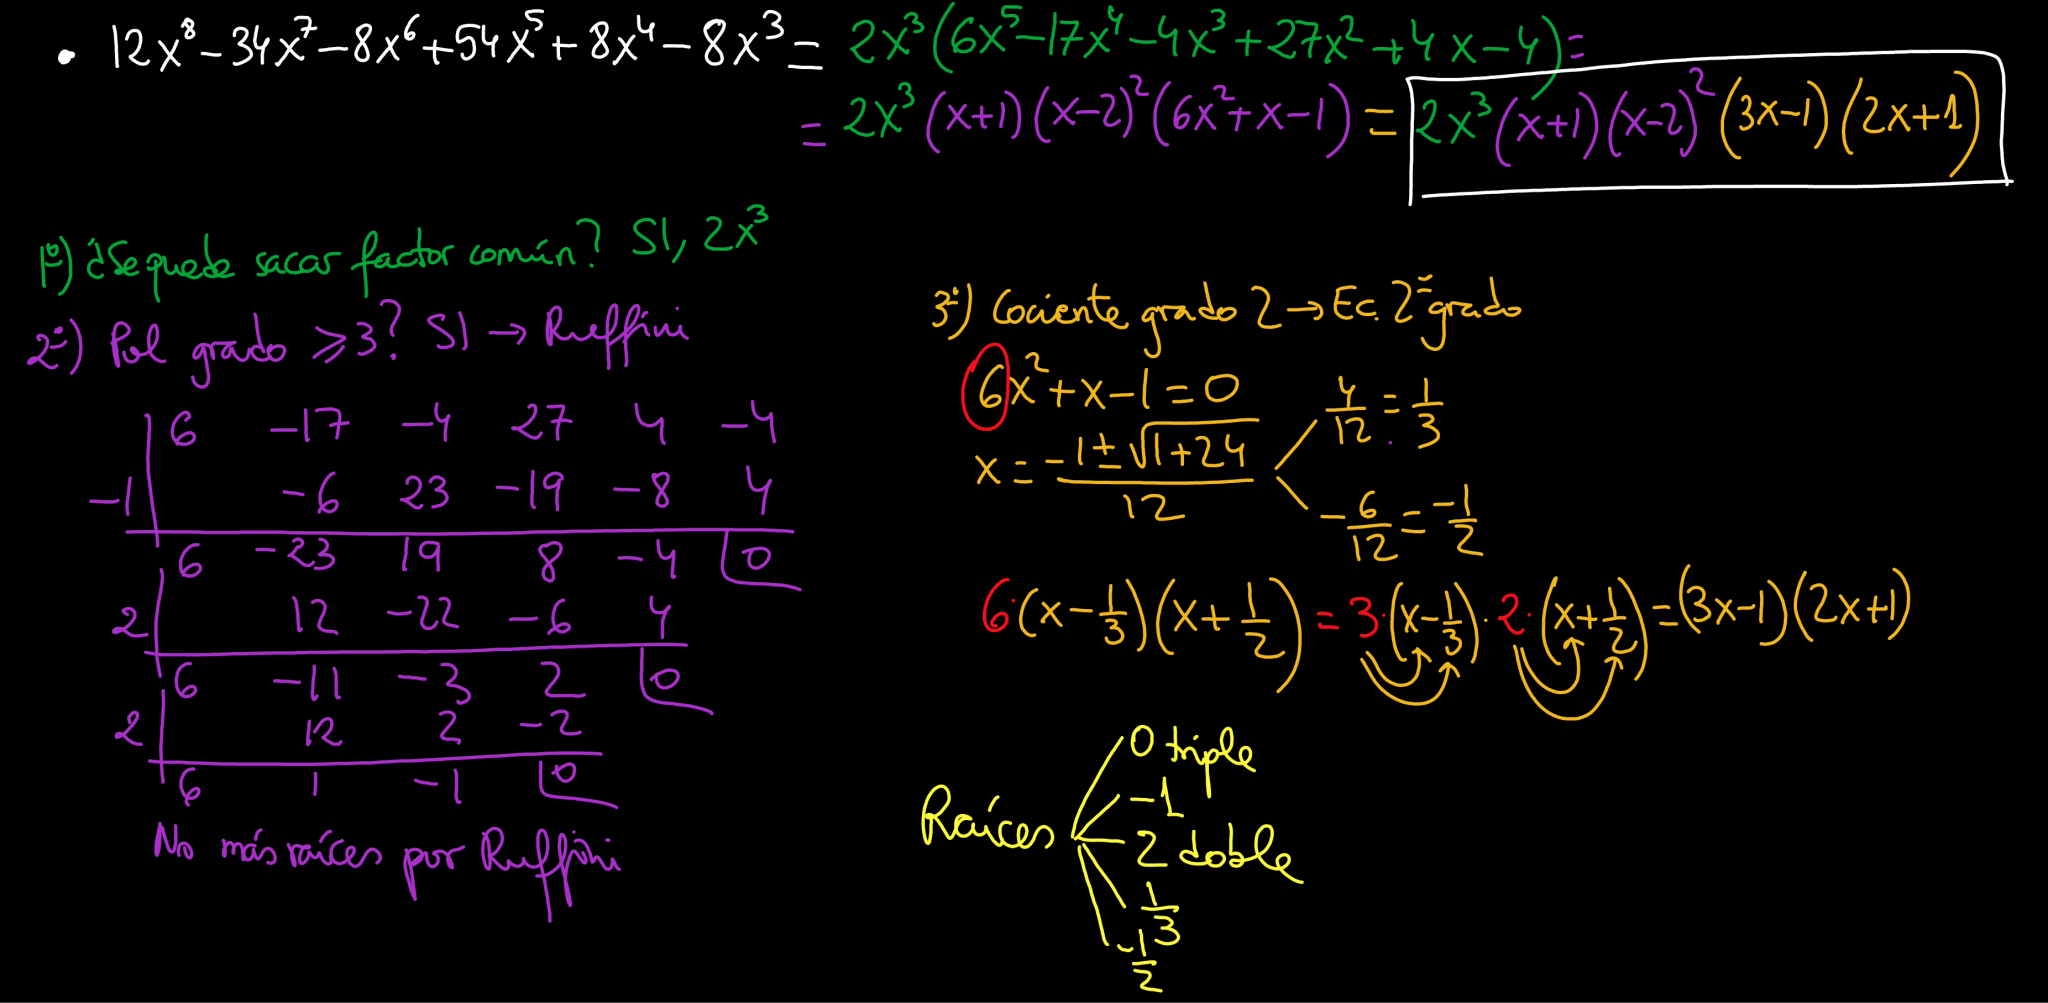 • 12x⁸-34x⁷-8x⁶+54x⁵+8x⁴-8x³= 2x³(6x⁵-17x⁴-4x³+27x²+4x-4)=
= 2x³(x+1)(x-2)²(6x²+x-1) = 2x³(x+1)(x-2)²(3x-1)(2x+1)
1º) ¿Se puede sacar factor común? SI, 2x³
2º) Pol grado ⩾3? SI → Ruffini
6 -17 -4 27 4 -4
-1 -6 23 -19 -8 4
6 -23 19 8 -4 0
2 12 -22 -6 4
6 -11 -3 2 0
2 12 2 -2
6 1 -1 0
No más raíces por Ruffini
3º) Cociente grado 2 → Ec. 2º grado
6x²+x-1=0
x = (-1±√(1+24))/12
4/12 = 1/3
-6/12 = -1/2
6·(x-1/3)(x+1/2) = 3·(x-1/3)·2·(x+1/2)=(3x-1)(2x+1)
Raíces
0 triple
-1
2 doble
1/3
-1/2